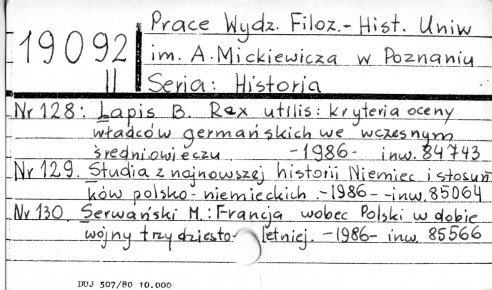 19092
II
Prace Wydz. Filoz.- Hist. Uniw
im. A. Mickiewicza w Poznaniu
Seria: Historia
Nr 128: Lapis B. Rex utilis: kryteria oceny
władców germańskich we wczesnym
średniowieczu -1986- inw. 84743
Nr 129. Studia z najnowszej historii Niemiec i stosun
ków polsko-niemieckich. -1986- -inw. 85064
Nr 130. Serwański M.: Francja wobec Polski w dobie
wojny trzydziesto- letniej. -1986- inw. 85566
DUJ 507/80 10.000